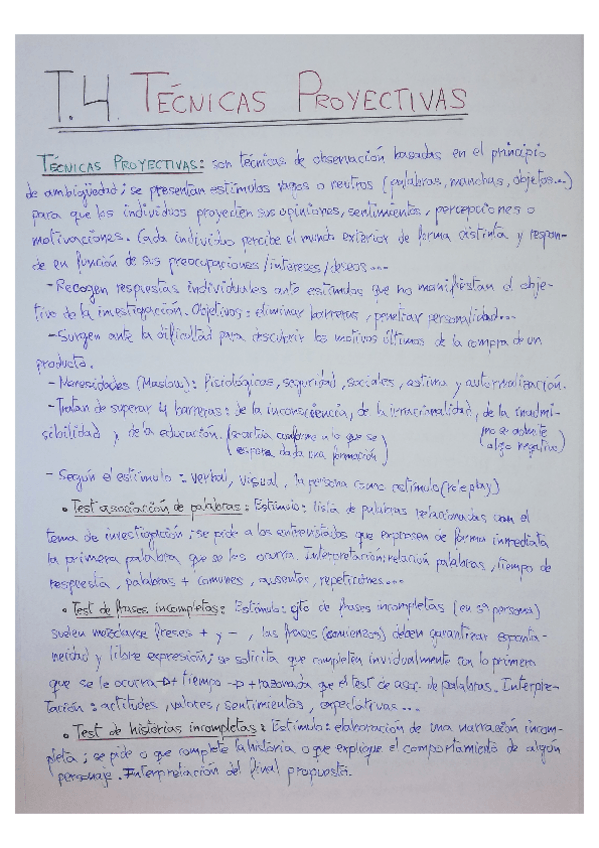 T.4. TÉCNICAS PROYECTIVAS
TÉCNICAS PROYECTIVAS: son técnicas de observación basadas en el principio
de ambigüedad; se presentan estímulos vagos o neutros (palabras, manchas, objetos...)
para que los individuos proyecten sus opiniones, sentimientos, percepciones o
motivaciones. Cada individuo percibe el mundo exterior de forma distinta y respon-
de en función de sus preocupaciones/intereses/deseos...
- Recogen respuestas individuales ante estímulos que no manifiestan el obje-
tivo de la investigación. Objetivos: eliminar barreras, penetrar personalidad...
- Surgen ante la dificultad para descubrir los motivos últimos de la compra de un
producto.
- Necesidades (Maslow): fisiológicas, seguridad, sociales, estima y autorrealización.
- Tratan de superar 4 barreras: de la inconsciencia, de la irracionalidad, de la inadmi-
sibilidad y de la educación. (se actúa conforme a lo que se (no se admite
espera dada una formación) algo negativo)
- Según el estímulo: verbal, visual, la persona como estímulo (role play)
• Test asociación de palabras: Estímulo: lista de palabras relacionadas con el
tema de investigación; se pide a los entrevistados que expresen de forma inmediata
la primera palabra que se les ocurra. Interpretación: relación palabras, tiempo de
respuesta, palabras + comunes, ausentes, repeticiones...
• Test de frases incompletas: Estímulo: cjto de frases incompletas (en 3ª persona)
suelen mezclarse frases + y -, las frases (comienzos) deben garantizar esponta-
neidad y libre expresión; se solicita que completen invidualmente con lo primero
que se le ocurra → + tiempo → + razonada que el test de asoc. de palabras. Interpre-
tación: actitudes, valores, sentimientos, expectativas...
• Test de historias incompletas: Estímulo: elaboración de una narración incom-
pleta; se pide o que complete la historia o que explique el comportamiento de algún
personaje. Interpretación del final propuesto.